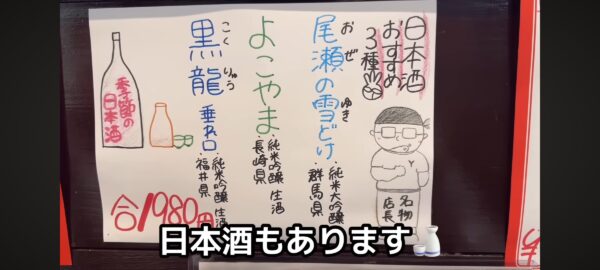 日本酒
おすすめ
3種
尾瀬の雪どけ
おぜ
ゆき
・純米大吟醸
群馬県
よこやま
・純米吟醸 生酒
長崎県
黒龍
こくりゅう
垂れ口
・純米吟醸 生酒
福井県
季節の
日本酒
合1980円
名物
店長
日本酒もあります